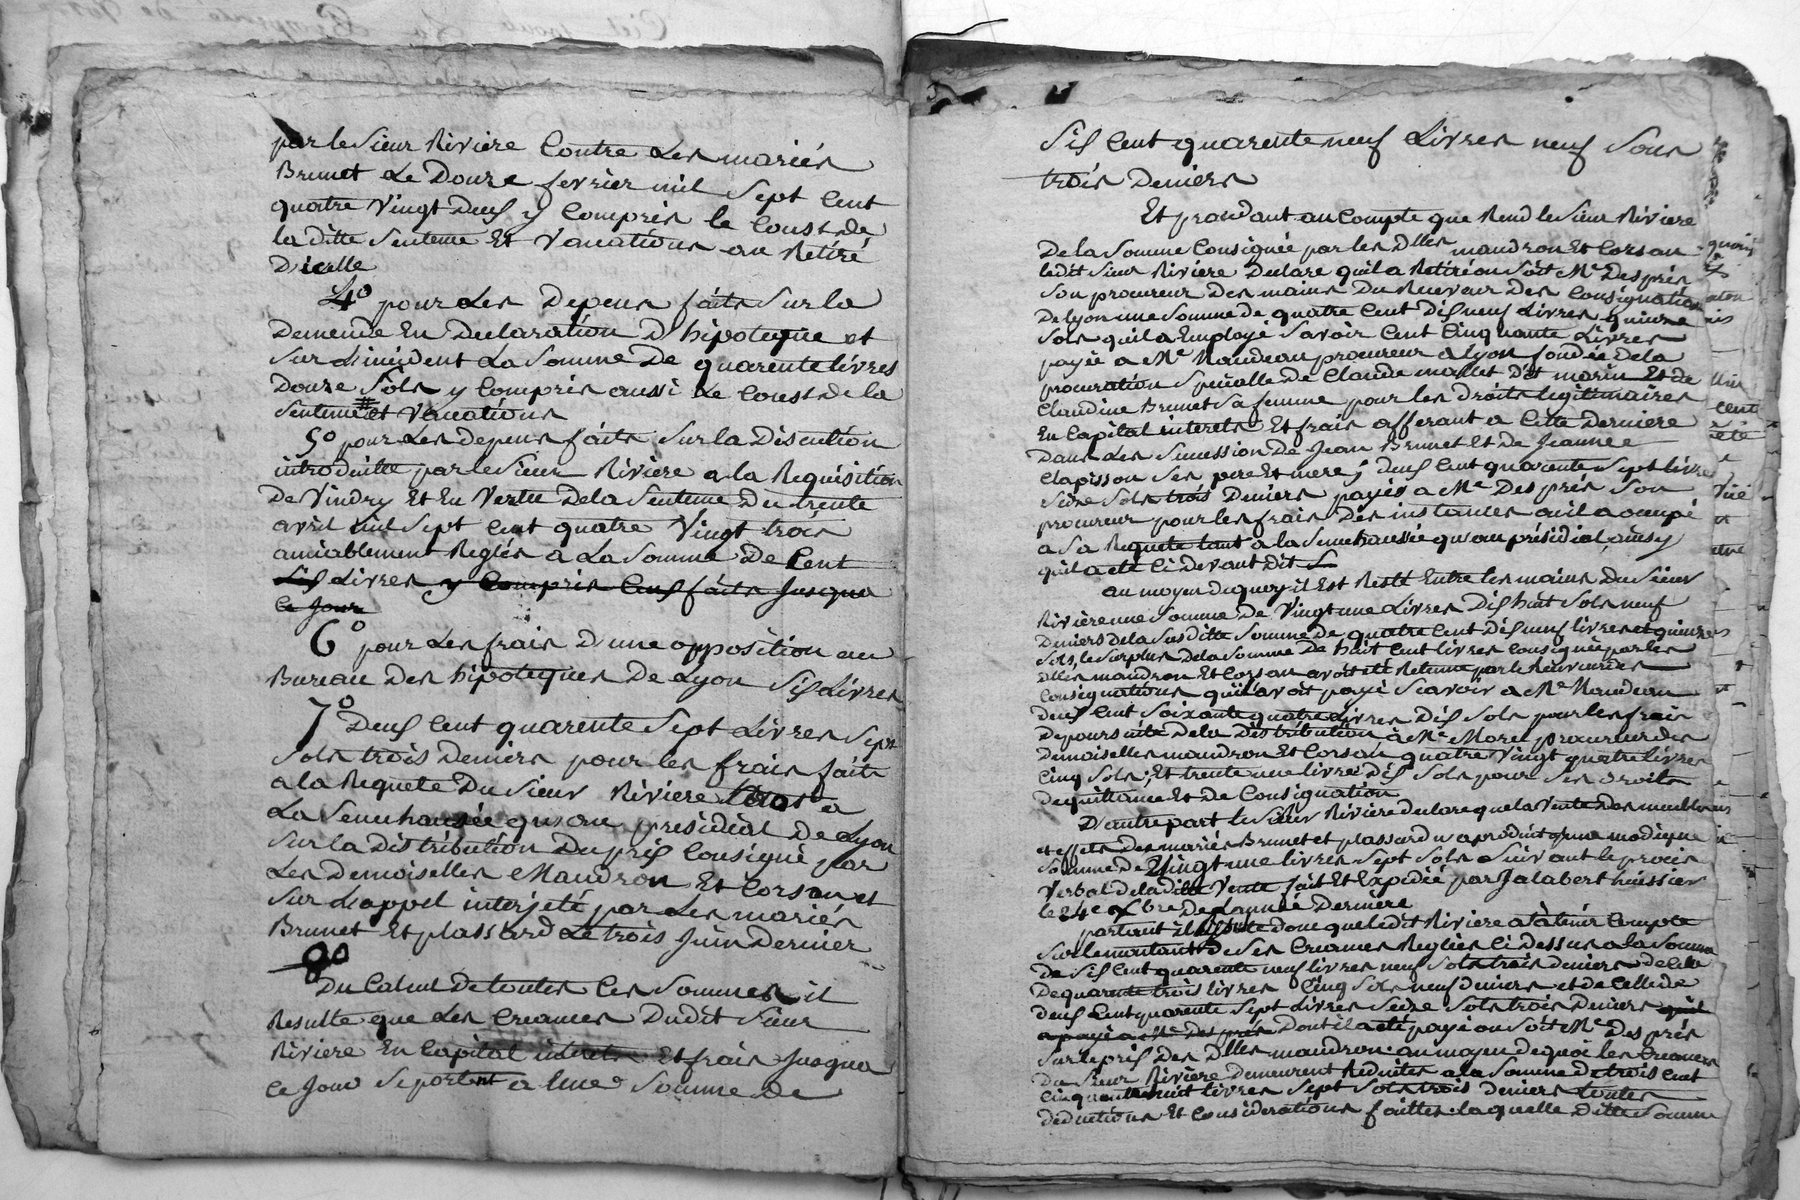 par le Sieur Riviere Contre Les mariés
Brunet Le Douze fevrier mil Sept Cent
quatre Vingt Deux y Compris le Coust de
la ditte Sentence Et Vacations au Retiré
D'icelle
4º pour Les Depens faits Sur la
Demende En Declaration D'hipoteque et
Sur L'incident La Somme De quarente livres
Douze Sols y Compris aussi Le Coust de la
Sentence et Vacations
5º pour Les depens faits Sur la Discution
introduitte par le Sieur Riviere a la Requisition
De Vindry Et En Vertu De la Sentence Du trente
avril mil Sept Cent quatre Vingt trois
amiablement Reglés a La Somme De Cent
Six Livres y Compris Ceux faits Jusqua
Ce Jour
6º pour Les frais D'une opposition au
Bureau Des hipoteques De Lyon Six Livres
7º Deux Cent quarente Sept Livres Sept
Sols trois Deniers pour les frais faits
a la Requete Du Sieur Riviere tant a
La Senechaussée qu'au presidial De Lyon
Sur la Distribution Du prix Consigné par
Les Demoiselles Maudron Et Corsan et
Sur L'appel interjeté par Les mariés
Brunet Et plassard Le trois Juin Dernier
8º
Du Calcul De toutes Ces Sommes il
Resulte que Les Creances Dudit Sieur
Riviere En Capital interets Et frais Jusqua
Ce Jour Se portent a Une Somme De
Six Cent quarente neuf Livres neuf Sous
trois Deniers
Et prandant au Compte que Rend le Sieur Riviere
De la Somme Consignée par les Dlles maudron Et Corsan
ledit Sieur Riviere Declare qu'il a Retiré ou Soit Me Després
Son procureur Des mains Du Receveur Des Consignations
De Lyon une Somme de quatre Cent Dix neuf Livres quinze
Sols qu'il a Employé Savoir Cent Cinquante Livres
payée a Me Naudeau procureur a Lyon fondée de la
procuration Specialle De Claude mallet Dit marin Et de
Claudine Brunet Sa femme pour les droits legitimaires
En Capital interets Et frais afferant a Cette Derniere
Dans Les Succession De Jean Brunet Et De Jeannee
Clapisson Ses pere Et mere ; Deux Cent quarente Sept livres
Seize Sols trois Deniers payés a Me Des prés Son
procureur pour les frais Des instances qu'il a occupé
a Sa Requete tant a la Senechaussée qu'au présidial, ainsy
qu'il a eté Ci Devant Dit
au moyen de quoy il Est Resté Entre les mains Du Sieur
Riviere une Somme De Vingt une Livres Dix huit Sols neuf
Deniers De la Susditte Somme De quatre Cent Dix neuf livres et quinze
Sols, le Surplus De la Somme De huit Cent livres Consignée par les
Dlles maudron Et Corsan avoit eté Retenue par le Receveur des
Consignations qu'il avoit payé Scavoir a Me Naudeau
deux Cent Soixante quatre Livres Dix Sols pour les frais
De poursuite De la Distribution à Me Morel procureur des
Demoiselles maudron Et Corsan quatre Vingt quatre livres
Cinq Sols ; Et trente une livre Dix Sols pour Ses Droits
De quittance Et De Consignation
D'autre part le Sieur Riviere Declare que la Vente Des meubles
et effets Des mariés Brunet et plassard n'a produit qu'une modique
Somme De Vingt une livres Sept Sols Suivant le procès
Verbal De la Ditte Vente fait Et Expedié par Jalabert huissier
le 24e Xbre De L'année Derniere
partant il Resulte donc que ledit Riviere a à tenir Compte
Sur le montant De Ses Creances Reglées Ci Dessus a la Somme
De Six Cent quarente neuf livres neuf Sols trois deniers De Celle
De quarente trois livres Cinq Sols neuf deniers et de Celle de
deux Cent quarente Sept Livres Seize Sols trois Deniers qu'il
a payé a Me Des prés Dont il a eté payé ou Soit Me Des prés
Sur le prix Des Dlles maudron. au moyen de quoi les Creances
Du Sieur Riviere Demeurent Reduites a la Somme De trois Cent
Cinquante huit livres Sept Sols trois Deniers toutes
deductions Et Considerations faittes. laquelle Ditte Somme